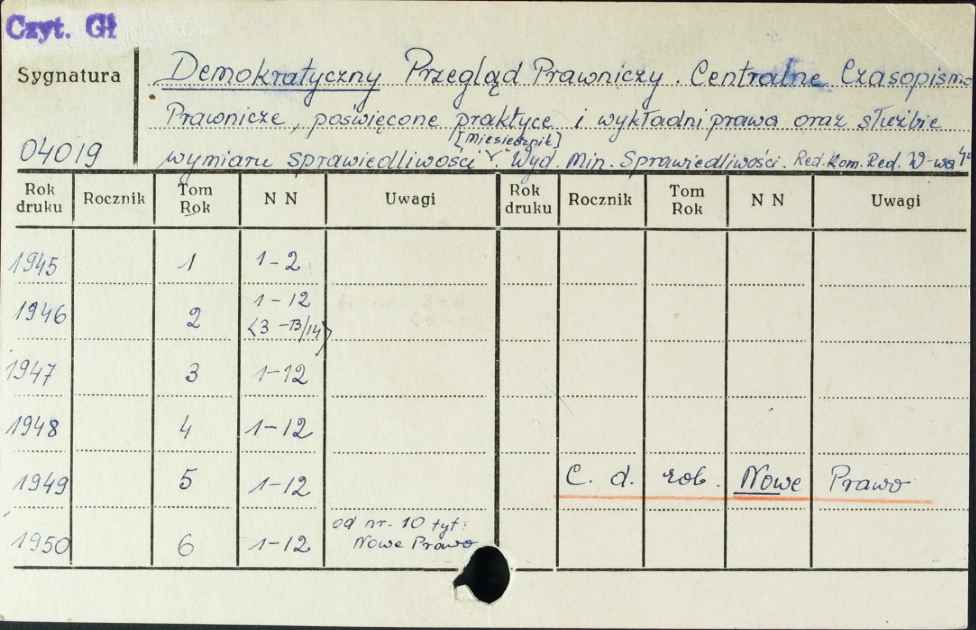 Czyt. Gł
Sygnatura
Demokratyczny Przegląd Prawniczy. Centralne Czasopismo
Prawnicze, poświęcone praktyce i wykładni prawa oraz służbie
[Miesięcznik]
04019
wymiaru sprawiedliwości. Wyd. Min. Sprawiedliwości. Red. Kom. Red. W-wa
Rok druku Rocznik Tom Rok N N Uwagi Rok druku Rocznik Tom Rok N N Uwagi
1945 1 1-2
1946 2 1-12
<3 -13/14>
1947 3 1-12
1948 4 1-12
1949 5 1-12 C. d. zob. Nowe Prawo
1950 6 1-12 od nr. 10 tyt:
Nowe Prawo